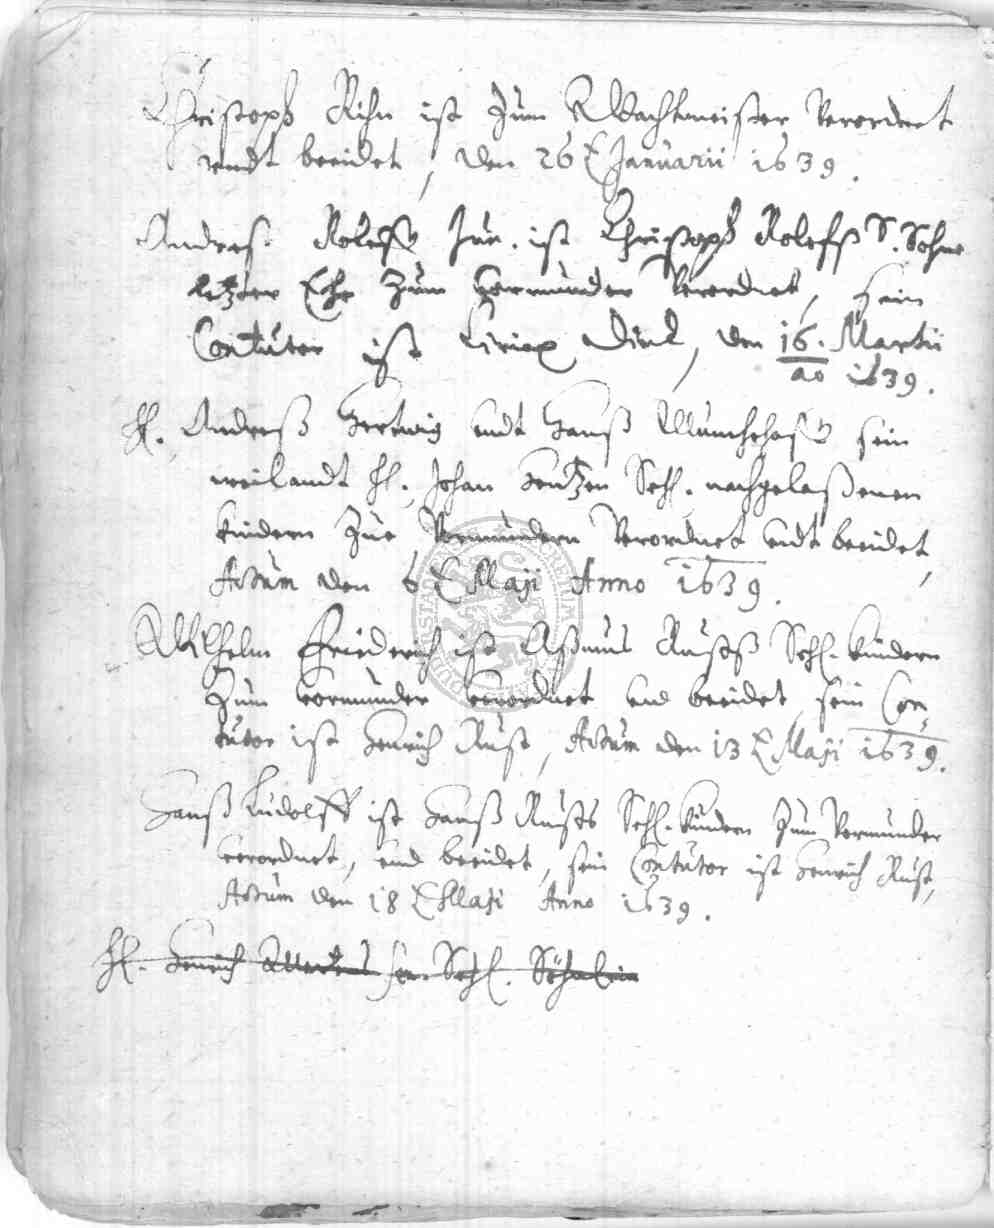 Christoph Rihn ist zum Wachtmeister verordnet
undt beeidet, den 26 Januarii 1639.
Andreß Roleffs Jun. ist Christoph Roleffß S. Sohne
letzter Ehe zum Vormunder verordnet, sein
Contutor ist Ciriax, den 16. Martii
ao 1639.
H. Andreß Hertwig undt Hanß sein
weilandt H. Johan Sehl. nachgelaßenen
kindern zue Vormundern verordnet undt beeidet,
Actum den 6 Maji Anno 1639.
Wilhelm Friederich ist Aßmus Rustß Sehl. kindern
zum vormunder verordnet und beeidet, sein Con,
tutor ist Henrich Rust, Actum den 13 Maji 1639.
Hanß Ludolff ist Hanß Rusts Sehl. kindern zum Vormunder
verordnet, und beeidet, sein Contutor ist Henrich Rust,
Actum den 18 Maji Anno 1639.
H. Henrich Sehl. Söhnlein